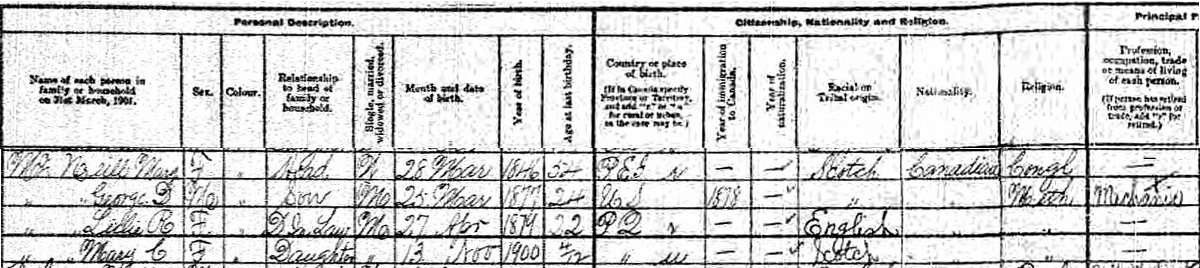 Personal Description. Citizenship, Nationality and Religion. Principal
Name of each person in family or household on 31st March, 1901. Sex. Colour. Relationship to head of family or household. Single, married, widowed or divorced. Month and date of birth. Year of birth. Age at last birthday. Country or place of birth. (If in Canada specify Province or Territory, and add "r" or "u" for rural or urban, as the case may be.) Year of immigration to Canada. Year of naturalization. Racial or Tribal origin. Nationality. Religion. Profession, occupation, trade or means of living of each person. (If person has retired from profession or trade, add "r" for retired.)
Mc Neill Mary F " Head W 28 Mar 1846 54 P.E.I r — — Scotch Canadian Congl —
" " George D Ma " Son Ma 25 Mar 1877 24 U S 1878 — " " Meth Mechanic
" " Lillie R F " D In Law Ma 27 Apr 1879 22 P Q r — — English " " —
" " Mary C F " Daughter " 13 Nov 1900 4/12 " u — — Scotch " " —